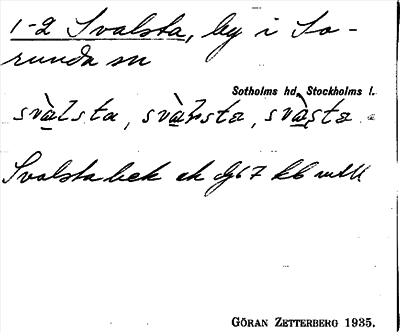 1-2 Svalsta, by i So-
runda sn
Sotholms hd, Stockholms l.
svàlsta, svàḷsta, svàṣta
Svalsta bek ek
GÖRAN ZETTERBERG 1935.